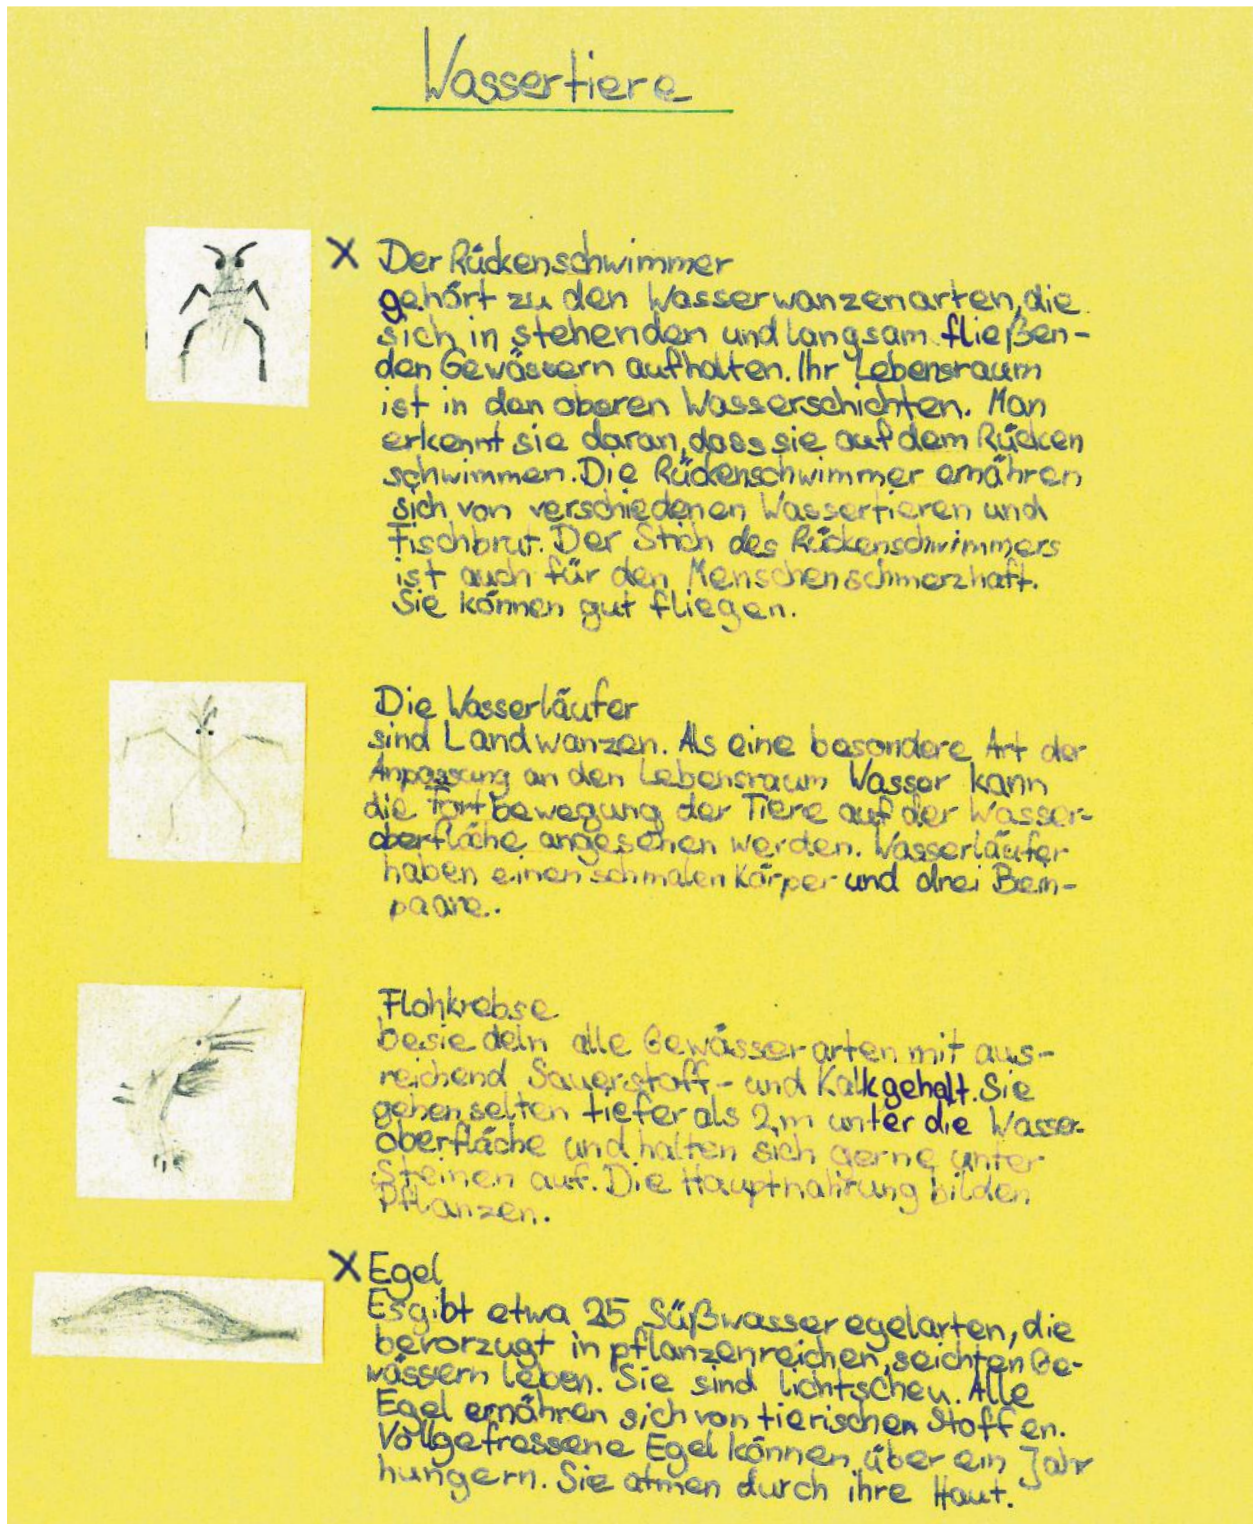 Wassertiere
X Der Rückenschwimmer
gehört zu den Wasserwanzenarten, die
sich in stehenden und langsam fließen-
den Gewässern aufhalten. Ihr Lebensraum
ist in den oberen Wasserschichten. Man
erkennt sie daran, dass sie auf dem Rücken
schwimmen. Die Rückenschwimmer ernähren
sich von verschiedenen Wassertieren und
Fischbrut. Der Stich des Rückenschwimmers
ist auch für den Menschen schmerzhaft.
Sie können gut fliegen.
Die Wasserläufer
sind Landwanzen. Als eine besondere Art der
Anpassung an den Lebensraum Wasser kann
die Fortbewegung der Tiere auf der Wasser-
oberfläche angesehen werden. Wasserläufer
haben einen schmalen Körper und drei Bein-
paare.
Flohkrebse
besiedeln alle Gewässerarten mit aus-
reichend Sauerstoff- und Kalkgehalt. Sie
gehen selten tiefer als 2 m unter die Wasser-
oberfläche und halten sich gerne unter
Steinen auf. Die Hauptnahrung bilden
Pflanzen.
X Egel
Es gibt etwa 25 Süßwasseregelarten, die
bevorzugt in pflanzenreichen, seichten Ge-
wässern leben. Sie sind lichtscheu. Alle
Egel ernähren sich von tierischen Stoffen.
Vollgefressene Egel können über ein Jahr
hungern. Sie atmen durch ihre Haut.